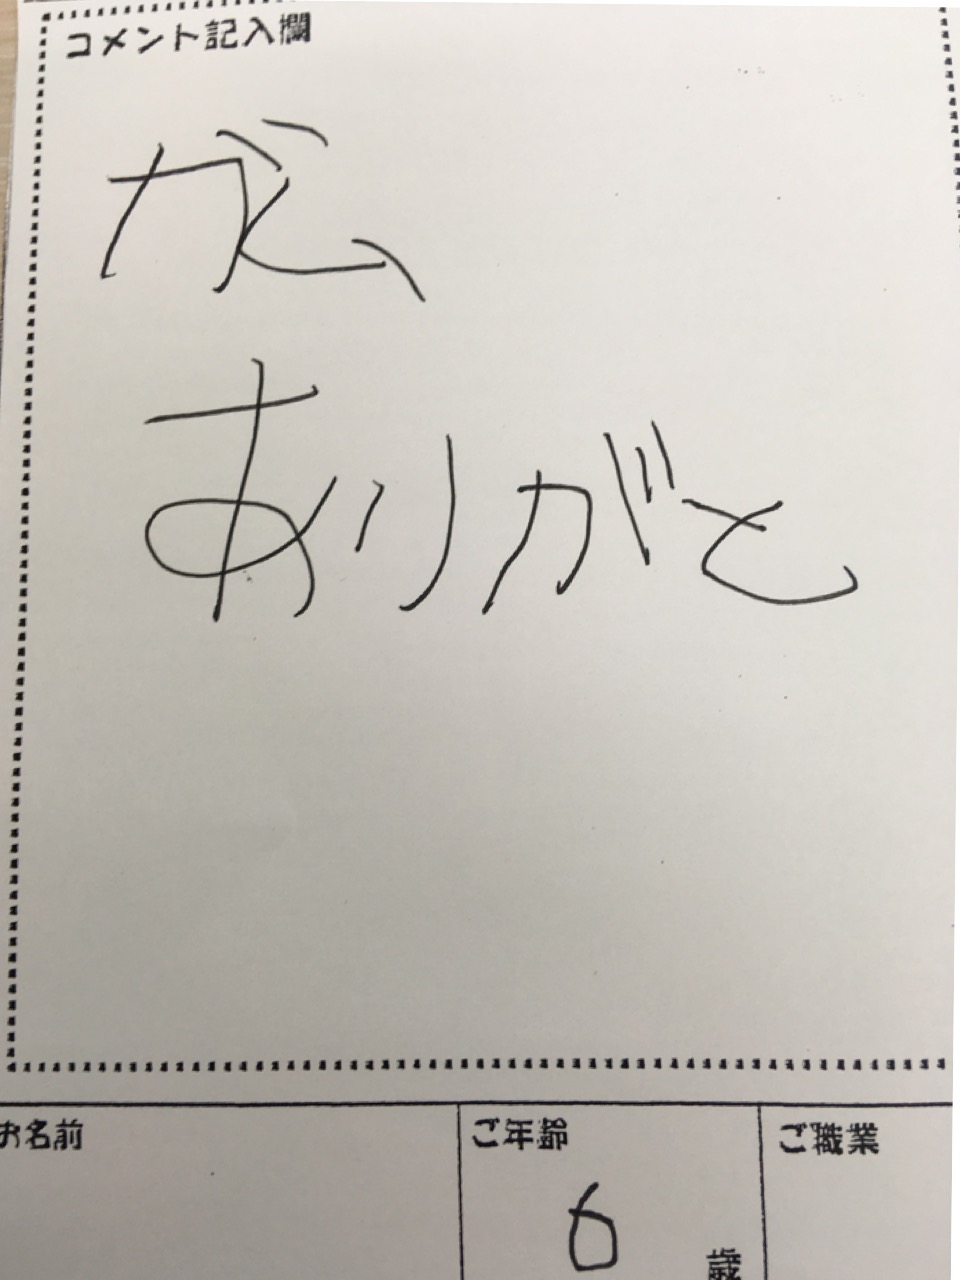 コメント記入欄
ありがと
お名前
ご年齢
ご職業
6
歳